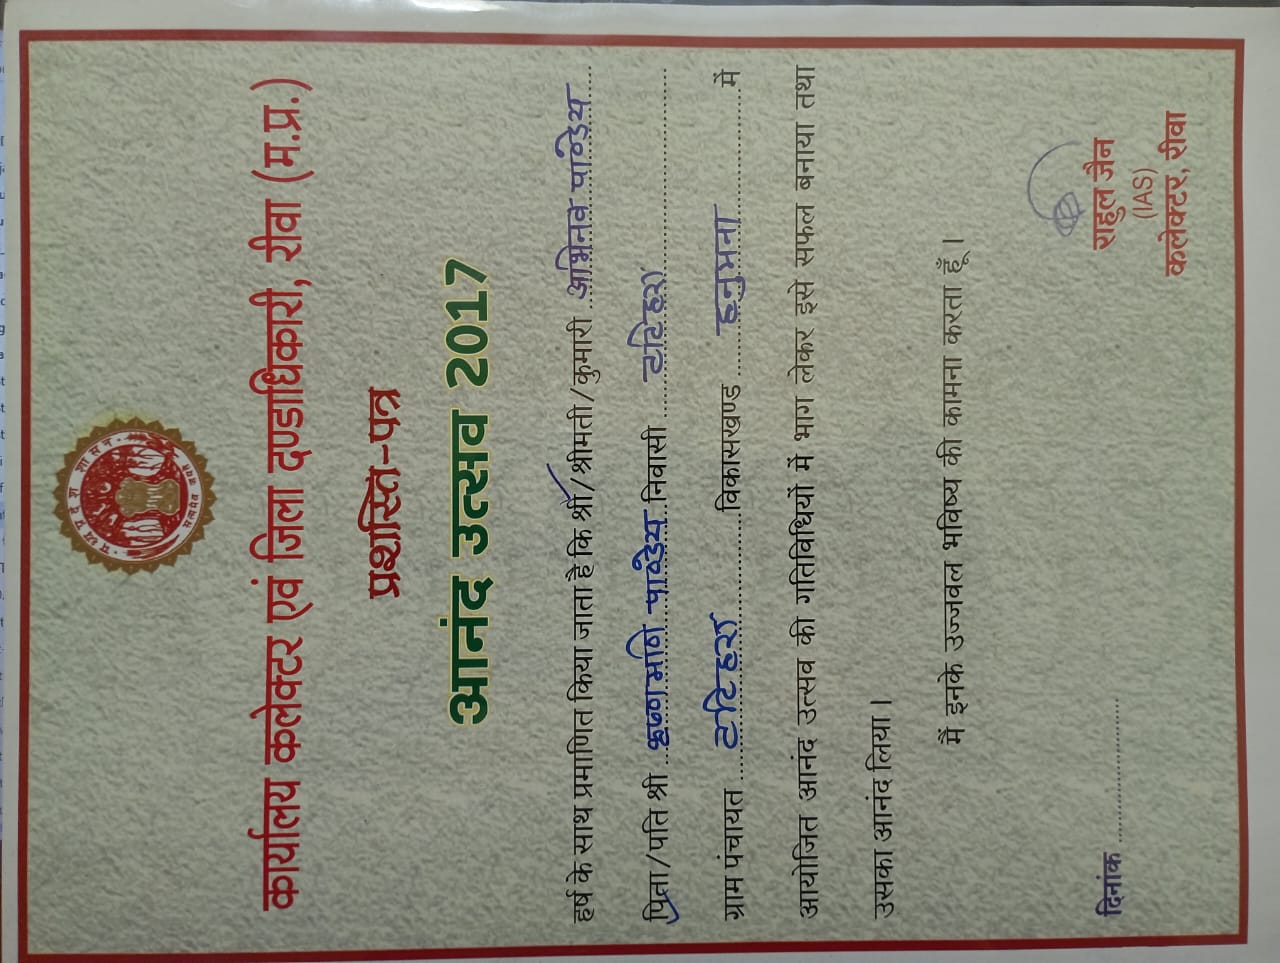 मध्यप्रदेश शासन
सत्यमेव जयते
कार्यालय कलेक्टर एवं जिला दण्डाधिकारी, रीवा (म.प्र.)
प्रशस्ति-पत्र
आनंद उत्सव 2017
हर्ष के साथ प्रमाणित किया जाता है कि श्री/श्रीमती/कुमारी अभिनव पाण्डेय
पिता/पति श्री कृष्णमणि पाण्डेय निवासी टटिहरा
ग्राम पंचायत टटिहरा विकासखण्ड हनुमना में
आयोजित आनंद उत्सव की गतिविधियों में भाग लेकर इसे सफल बनाया तथा
उसका आनंद लिया।
मैं इनके उज्जवल भविष्य की कामना करता हूँ।
दिनांक ....................
राहुल जैन
(IAS)
कलेक्टर, रीवा